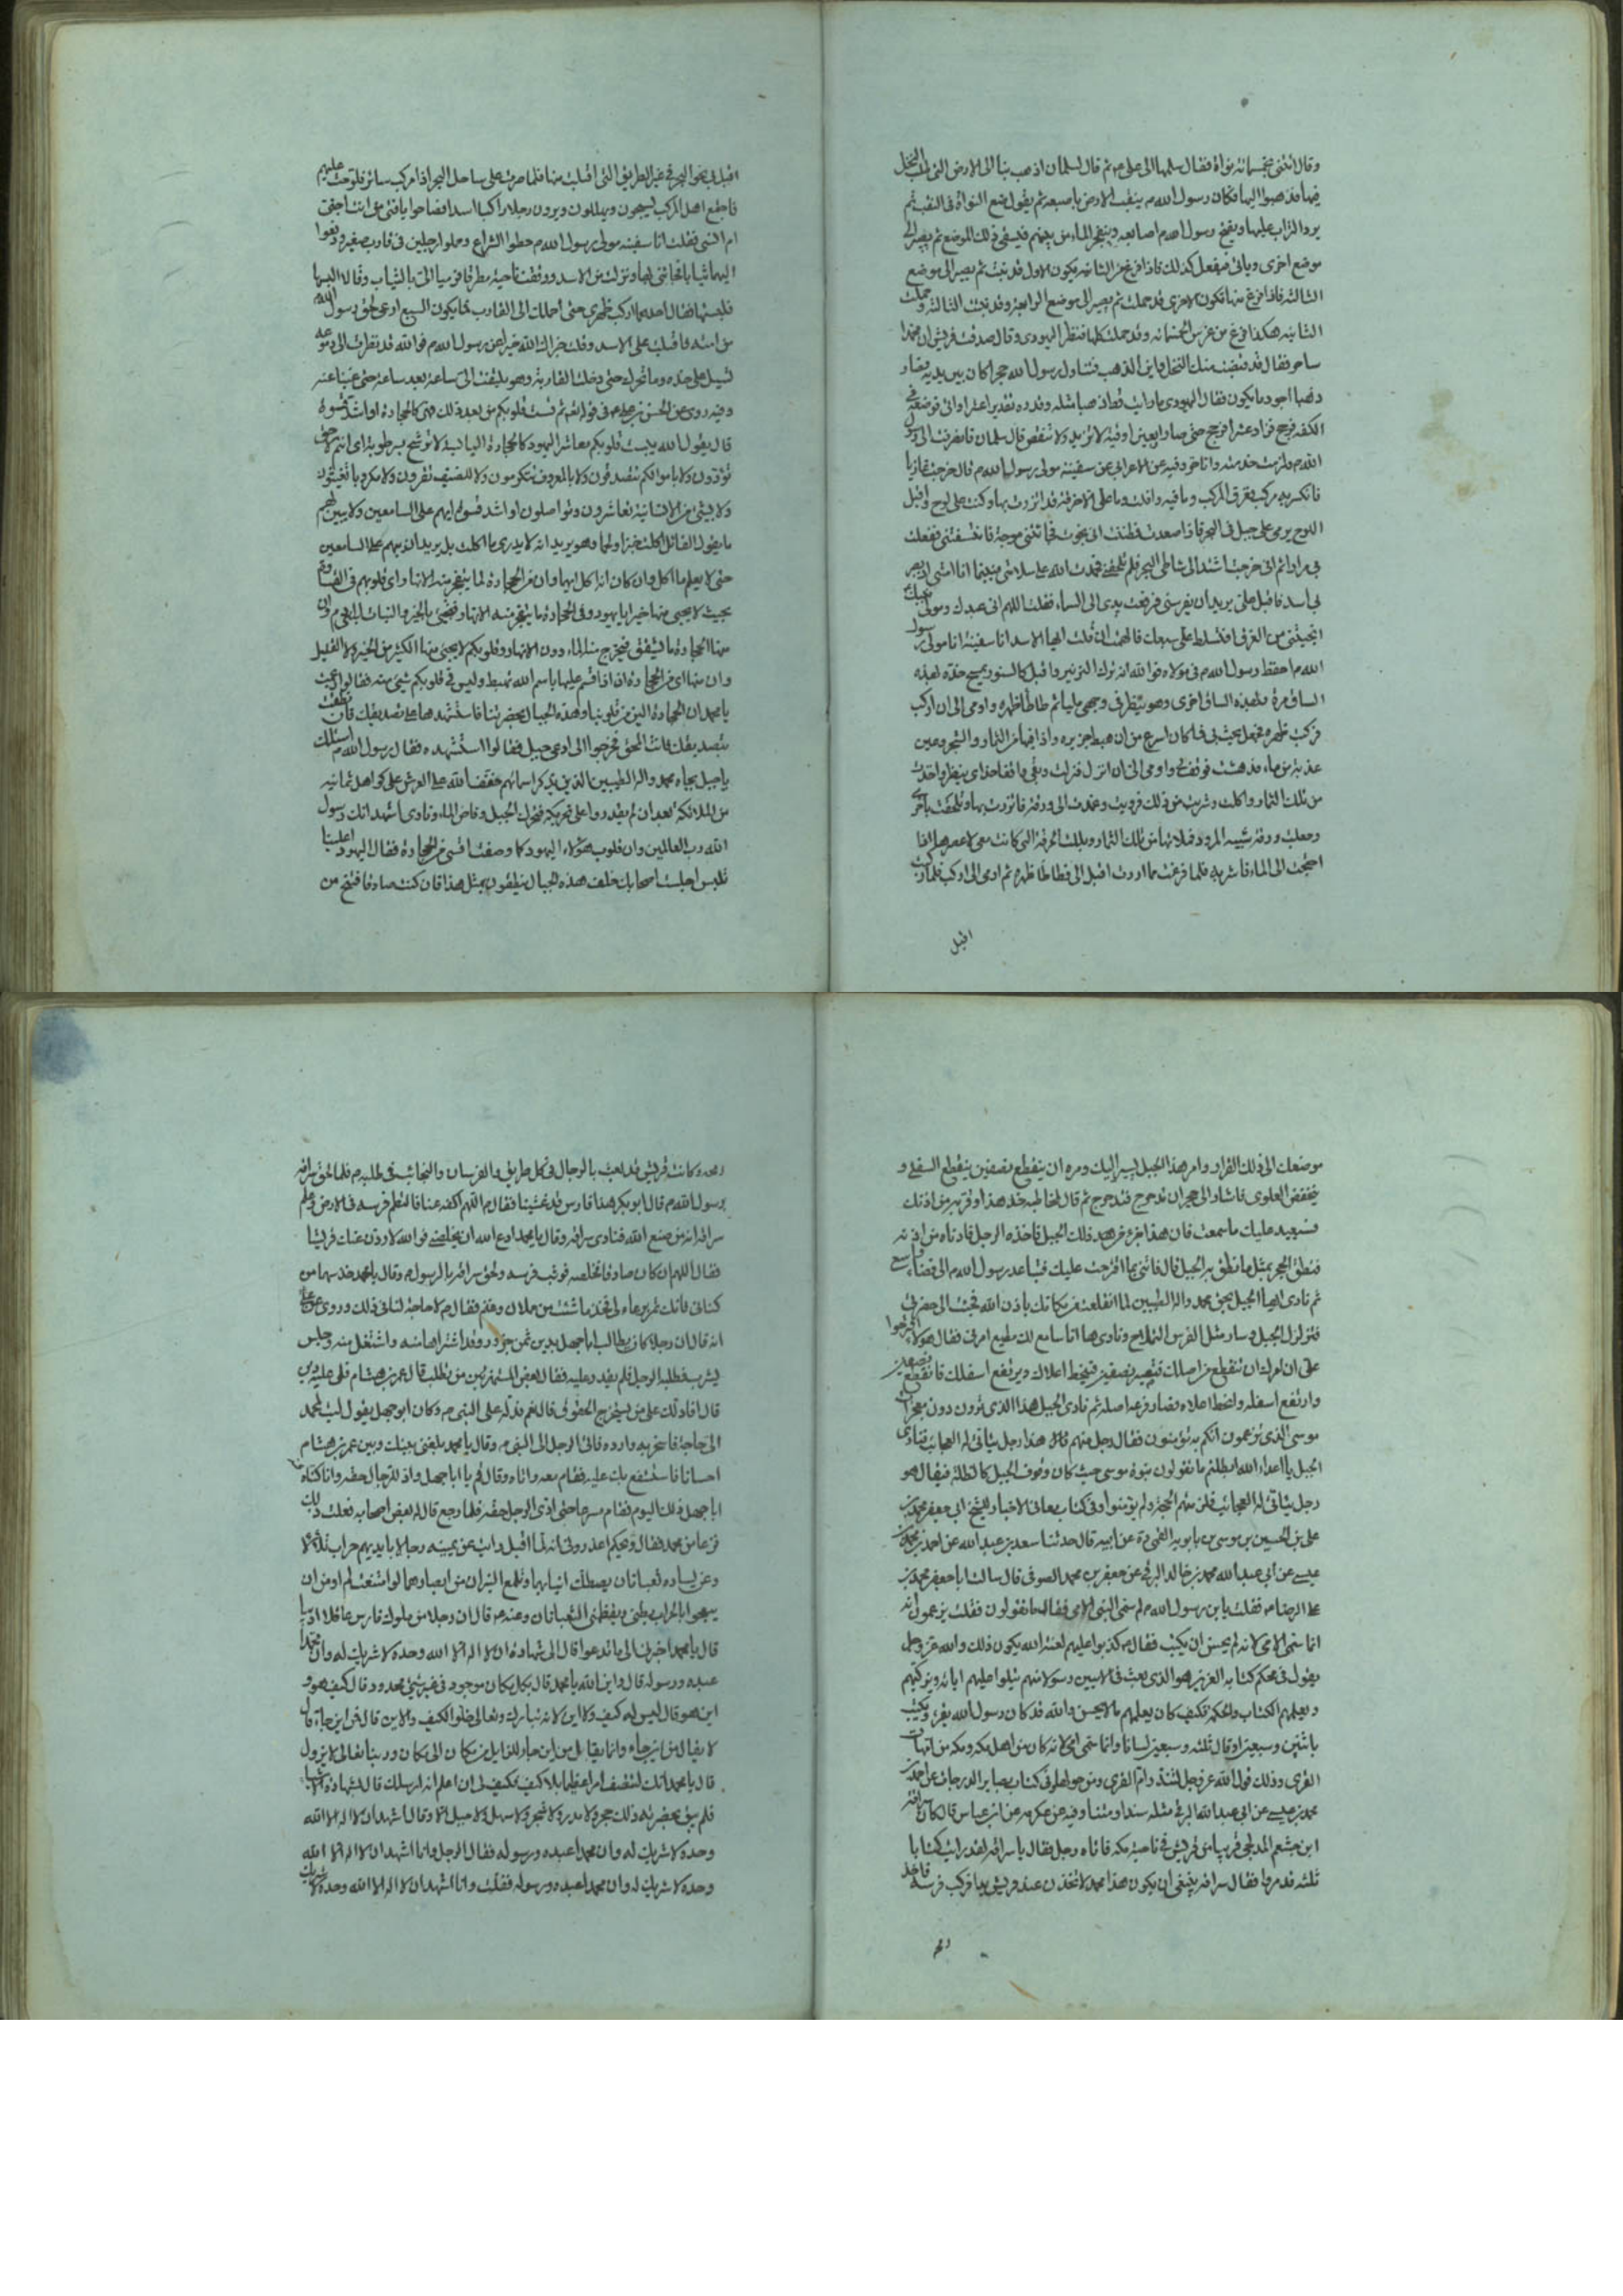 وقال ائتنى بخمسمائة نواة فقال سلمها الى على ع ثم قال لسلمان اذهب بنا الى الارض التى طلب النخل
فيها فذهبوا اليها فكان رسول الله ص يثقب الارض باصبعه ثم يقول ضع النواة فى الثقب ثم
يرد التراب عليها ويفتح رسول الله ص اصابعه وينفجر الماء من بينهم فيسقى ذلك الموضع ثم يصير الى
موضع اخرى وياتى فيفعل كذلك فاذا فرغ من الثانيه يكون الاول قد نبتت ثم يصير الى موضع
الثالثه فاذا فرغ منها تكون الاخرى قد حملت ثم يصير الى موضع الرابعة وقد نبتت الثالثة وحملت
الثانيه هكذا فرغ من غرس الخمسمائه وقد حملت كلها فنظر اليهودى وقال صدقت قريش ان محمدا
ساحر فقال قد قبضت منك النخل فاين الذهب فتناول رسول الله حجرا كان بين يديه فصار
ذهبا اجود ما يكون فقال اليهودى ما رايت قط ذهبا مثله وقدره بتقدير عشر اواقى فوضعه فى
الكفه فرجح فزاد عشرا فرجح حتى صار اربعين اوقية لا تزيد ولا تنقص قال سلمان فانصرفت الى رسول
الله ص فلزمت خدمته وانا حر وفيه عن الاعرابى عن سفينة مولى رسول الله ص قال خرجت غازيا
فانكسر بى مركب فغرق المركب وما فيه وافلت وما على الا خرقة قد اتزرت بها وكنت على لوح واقبل
اللوح يرمى على جبل فى البحر فاذا صعدت فظننت انى نجوت فجائتنى موجة فانتسفتنى ففعلت
بى مرارا ثم انى خرجت اشتد الى شاطى البحر فلم تلحقنى فحمدت الله على سلامتى فبينما انا امشى اذ بصر
بى اسد فاقبل على يريد ان يفرسنى فرفعت يدى الى السماء فقلت اللهم انى عبدك ومولى نبيك
انجيتنى من الغرق افتسلط على سبعك فالهمت ان قلت ايها الاسد انا سفينة انا مولى رسول
الله ص احفظ رسول الله ص فى مولاه فوالله انه ترك الزئير واقبل كالسنور يمسح خده بهذه
الساق مرة وبهذه الساق اخرى وهو ينظر فى وجهى مليا ثم طاطأ ظهره واومى الى ان اركب
فركبت ظهره فجعل يخب بى فما كان اسرع من ان هبط جزيره واذا فيها من الثمار والشجر وعين
عذبة من ماء فدهشت فوقف لى واومى الى ان انزل فنزلت وبقى واقفا حذاى ينظر واخذت
من تلك الثمار واكلت وشربت من ذلك فرويت وعمدت الى ورقه فاتزرت بها وتلحفت باخرى
وجعلت ورقه شبيه المزود فملاتها من تلك الثمار وبللت الخرقة التى كانت معى لاعصرها اذا
احتجت الى الماء فاشربه فلما فرغت مما اردت اقبل الى فطاطا ظهره ثم اومى الى اركب فلما ركبت
اقبل
اقبل بى نحو البحر فى غير الطريق التى اقبلت منها فلما صرت على ساحل البحر اذا مركب سائر فلوحت عليهم
فاجتمع اهل المركب يسبحون ويهللون ويرون رجلا راكبا اسدا فصاحوا يا فتى من انت اجنى
ام انسى فقلت انا سفينه مولى رسول الله ص حطوا الشراع وحملوا رجلين فى قارب صغير ودفعوا
اليهما ثيابا فجائتنى بها ونزلت من الاسد ووقفت ناحية مطرقا فرميا الى بالثياب وقالا البسها
فلبستها فقال احدهما اركب ظهرى حتى احملك الى القارب فما يكون السبع ارعى لحق رسول الله
من امته فاقبلت على الاسد وقلت جزاك الله خيرا عن رسول الله ص فوالله قد نظرت الى دموعه
تسيل على خده وما تحرك حتى دخلت القارب وهو يلتفت الى ساعة بعد ساعة حتى غبنا عنه
وفيه روى عن الحسن بن على ع فى قوله ثم قست قلوبكم من بعد ذلك فهى كالحجارة او اشد قسوة
قال يقول الله يبست قلوبكم معاشر اليهود كالحجارة اليابسة لا ترشح برطوبة اى انتم لا حق
تؤدون ولا باموالكم تتصدقون ولا بالمعروف تتكرمون ولا للضيف تقرون ولا مكروبا تغيثون
ولا بشئ من الانسانية تعاشرون وتواصلون او اشد قسوة ابهم على السامعين ولا يبين لهم
كما يقول القائل اكلت خبزا ولحما وهو يريد انه لا يدرى ما اكلت بل يريد ان يبهم على السامعين
حتى لا يعلم ما اكل وان كان انه اكل ايهما وان من الحجارة لما يتفجر منه الانهار اى قلوبهم فى القساوة
بحيث لا يجيى منها خير يا يهود وفى الحجارة ما يتفجر منه الانهار فتجئ بالخير والنبات لبنى ادم وان
منها الحجارة ما يتشقق فيخرج منه الماء دون الانهار وقلوبكم لا يجئ منها الكثير من الخير ولا القليل
وان منها اى من الحجارة ان اذا اقسم عليها باسم الله تهبط وليس فى قلوبكم شئ منه فقالوا زعمت
يا محمد ان الحجارة الين من قلوبنا وهذه الجبال بحضرتنا فاستشهدها على تصديقك فان نطقت
بتصديقك فانت المحق فخرجوا الى اوعر جبل فقالوا استشهده فقال رسول الله ص اسئلك
يا جبل بجاه محمد واله الطيبين الذين بذكر اسمائهم خفف الله على العرش على كواهل ثمانيه
من الملائكه بعد ان لم يقدروا على تحريكه فتحرك الجبل وفاض الماء ونادى اشهد انك رسول
الله رب العالمين وان قلوب هؤلاء اليهود كما وصفت اقسى من الحجارة فقال اليهود اعلينا
تلبس اجلست اصحابك خلف هذه الجبال ينطقون بمثل هذا فان كنت صادقا فتنح من
موضعك الى ذلك القرار وامر هذا الجبل يسير اليك ومره ان ينقطع نصفين ينقطع السفلى و
ينخفض العلوى فاشار الى حجر ان تدحرج فتدحرج ثم قال لمخاطبه خذ هذا وقربه من اذنك
فسيعيد عليك ما سمعت فان هذا جزء من هذا ذلك الجبل فاخذه الرجل فادناه من اذنه
فنطق الحجر بمثل ما نطق به الجبل قال فائتنى بما اقترحت عليك فتباعد رسول الله ص الى فضاء واسع
ثم نادى ايها الجبل بحق محمد واله الطيبين لما انقلعت من مكانك باذن الله فجئت الى حضرتى
فتزلزل الجبل وسار مثل الفرس الهملاج ونادى ها انا سامع لك مطيع امرك فقال هؤلاء اقترحوا
على ان امرك ان تنقطع من اصلك فتصير نصفين فينحط اعلاك ويرتفع اسفلك فانقطع نصفين
وارتفع اسفله وانحط اعلاه فصار فرعه اصله ثم نادى الجبل هذا الذى ترون دون معجزات
موسى الذى تزعمون انكم به تؤمنون فقال رجل منهم هذا رجل يتاتى له العجائب فنادى
الجبل يا اعداء الله ابطلتم بما تقولون نبوة موسى حيث كان وقوف الجبل كالظلة فيقال هو
رجل يتاتى له العجائب فلزمتهم الحجة ولم يؤمنوا وفى كتاب معانى الاخبار للشيخ ابى جعفر محمد بن
على بن الحسين بن موسى بن بابويه القمى ره عن ابيه قال حدثنا سعد بن عبد الله عن احمد بن محمد بن
عيسى عن ابى عبد الله محمد بن خالد البرقى عن جعفر بن محمد الصوفى قال سالت ابا جعفر محمد بن
على الرضا ع فقلت يا بن رسول الله ص لم سمى النبى الامى فقال ما تقولون فقلت يزعمون انه
انما سمى الامى لانه لم يحسن ان يكتب فقال ع كذبوا عليهم لعنة الله يكون ذلك والله عز وجل
يقول فى محكم كتابه العزيز هو الذى بعث فى الاميين رسولا منهم يتلوا عليهم اياته ويزكيهم
ويعلمهم الكتاب والحكمة فكيف كان يعلمهم ما لا يحسن والله قد كان رسول الله يقرء ويكتب
باثنين وسبعين او قال ثلثه وسبعين لسانا وانما سمى الامى لانه كان من اهل مكه ومكه من امهات
القرى وذلك قول الله عز وجل لتنذر ام القرى ومن حولها وفى كتاب بصاير الدرجات عن احمد بن
محمد بن عيسى عن ابى عبد الله البرقى مثله سندا ومتنا وفيه عن عكرمه عن ابن عباس قال كان سراقة
ابن جشعم المدلجى قريبا من قريش فى ناحية مكه فاتاه رجل فقال يا سراقه لقد رايت ركبا
ثلثه قد مروا فقال سراقه ينبغى ان يكون هذا محمد لاتخذن عند قريش يدا فركب فرسه فاخذ
رمحه
رمحه وكانت قريش قد بعث بالرجال فى كل طريق والفرسان والنجائب فى طلبه ص فلما لحق سراقه
برسول الله ص قال ابو بكر هذا فارس قد غشينا فقال ص اللهم اكفه عنا فانظم فرسه فى الارض وعلم
سراقه انه من صنع الله فنادى سراقه وقال يا محمد ادع الله ان يخلصنى فوالله لاردن عنك قريشا
فقال اللهم ان كان صادقا فخلصه فوثب فرسه ولحق سراقه بالرسول ص وقال يا محمد خذ سهما من
كنانى فانك تمر برعاء لى فخذ ما شئت من حملان وغنم فقال ص لا حاجة لنا فى ذلك وروى عن على ع
انه قال ان رجلا كان يطالب ابا جهل بدين ثمن جزور قد اشتراها منه واشتغل منه وجلس
يشرب فطلبه الرجل فلم يقدر عليه فقال بعض المستهزئين من تطلب قال عمر بن هشام فلى عليه دين
قال افادلك على من يستخرج الحقوق قال نعم فدله على النبى ص وكان ابو جهل يقول ليت لمحمد
الى حاجة فاسخر به وارده فاتى الرجل الى النبى ص وقال يا محمد بلغنى بينك وبين عمر بن هشام
احسانا فاستشفع بك عليه فقام معه واتاه وقال قم يا ابا جهل واد للرجل حقه وانما كناه
ابا جهل ذلك اليوم فقام مسرعا حتى ادى الرجل حقه فلما رجع قال له بعض اصحابه فعلت ذلك
فزعا من محمد فقال ويحكم اعذرونى انه لما اقبل رايت عن يمينه رجالا بايديهم حراب تتلألأ
وعن يساره ثعبانان يصطك انيابهما وتلمع النيران من ابصارهما لو امتنعت لم امن ان
يبعجوا بالحراب بطنى ويقظمنى الثعبانان وعنه ع قال ان رجلا من ملوك فارس عاقلا اديبا
قال يا محمد اخبرنى الى ما تدعوا قال الى شهادة ان لا اله الا الله وحده لا شريك له وان محمدا
عبده ورسوله قال واين الله يا محمد قال بكل مكان موجود فى غير شئ محدود قال كيف هو و
اين هو قال ليس له كيف ولا اين لانه تبارك وتعالى خلق الكيف والاين قال فمن اين جاء قال
لا يقال من اين جاء وانما يقال من اين جاء للزايل من مكان الى مكان وربنا تعالى لا يزول
قال يا محمد انك لتصف امرا عظيما بلا كيف فكيف لى ان اعلم انه ارسلك قال بشهادة الاشياء
فلم يبق بحضرته ذلك حجر ولا مدر ولا شجر ولا سهل ولا جبل الا وقال اشهد ان لا اله الا الله
وحده لا شريك له وان محمدا عبده ورسوله فقال الرجل وانا اشهد ان لا اله الا الله
وحده لا شريك له وان محمدا عبده ورسوله فقلت وانا اشهد ان لا اله الا الله وحده لا شريك